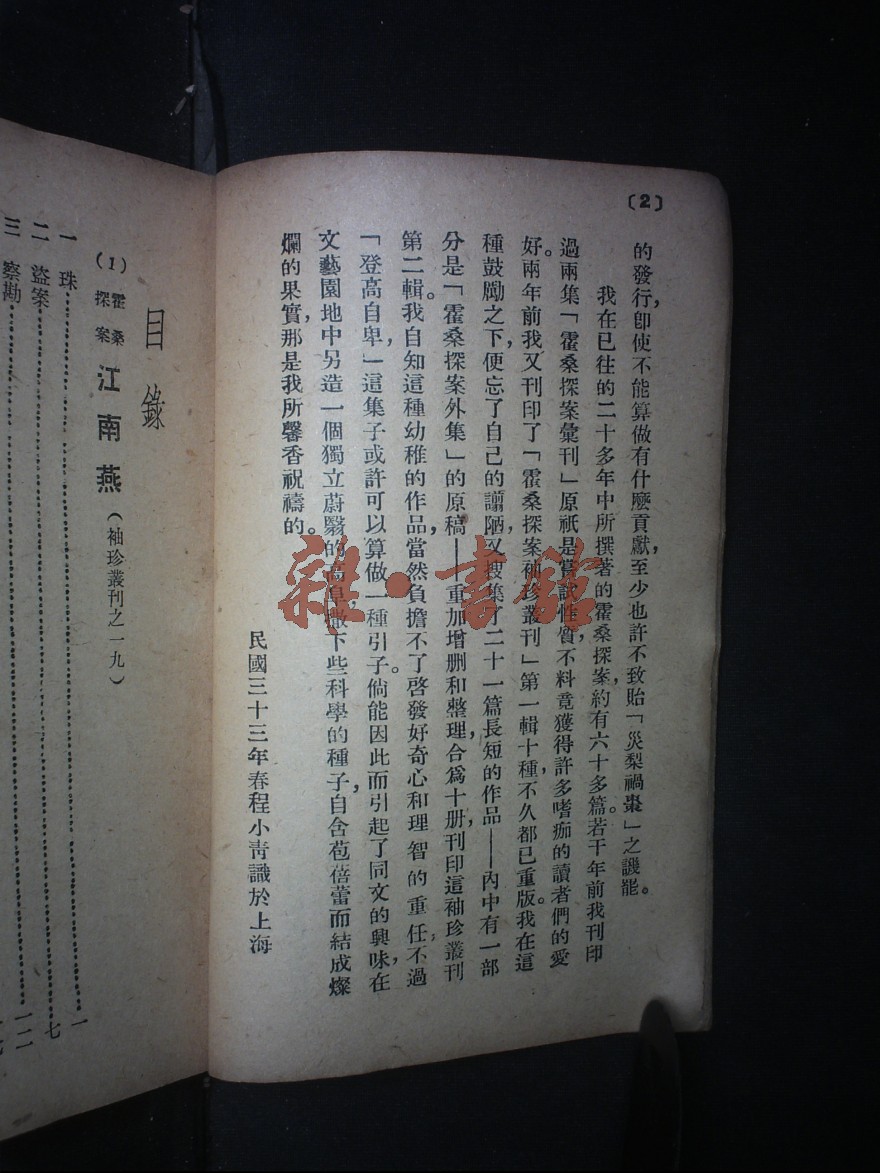 (2)
的發行,卽使不能算做有什麼貢獻,至少也許不致貽「災梨禍棗」之譏罷。
我在已往的二十多年中所撰著的霍桑探案,約有六十多篇。若干年前我刊印
過兩集「霍桑探案彙刊」原祇是嘗試性質,不料竟獲得許多嗜痂的讀者們的愛
好。兩年前我又刊印了「霍桑探案袖珍叢刊」第一輯十種,不久都已重版。我在這
種鼓勵之下,便忘了自己的譾陋,又搜集了二十一篇長短的作品——內中有一部
分是「霍桑探案外集」的原稿——重加增刪和整理,合爲十册,刊印這袖珍叢刊
第二輯。我自知這種幼稚的作品,當然負擔不了啓發好奇心和理智的重任,不過
「登高自卑,」這集子或許可以算做一種引子。倘能因此而引起了同文的興味,在
文藝園地中另造一個獨立蔚翳的高阜,撒下些科學的種子,自含苞蓓蕾而結成燦
爛的果實,那是我所馨香祝禱的。
民國三十三年春程小靑識於上海
目錄
(1) 霍桑探案 江南燕(袖珍叢刊之一九)
一 珠……一
二 盜案……七
三 察勘……一二
雜·書館